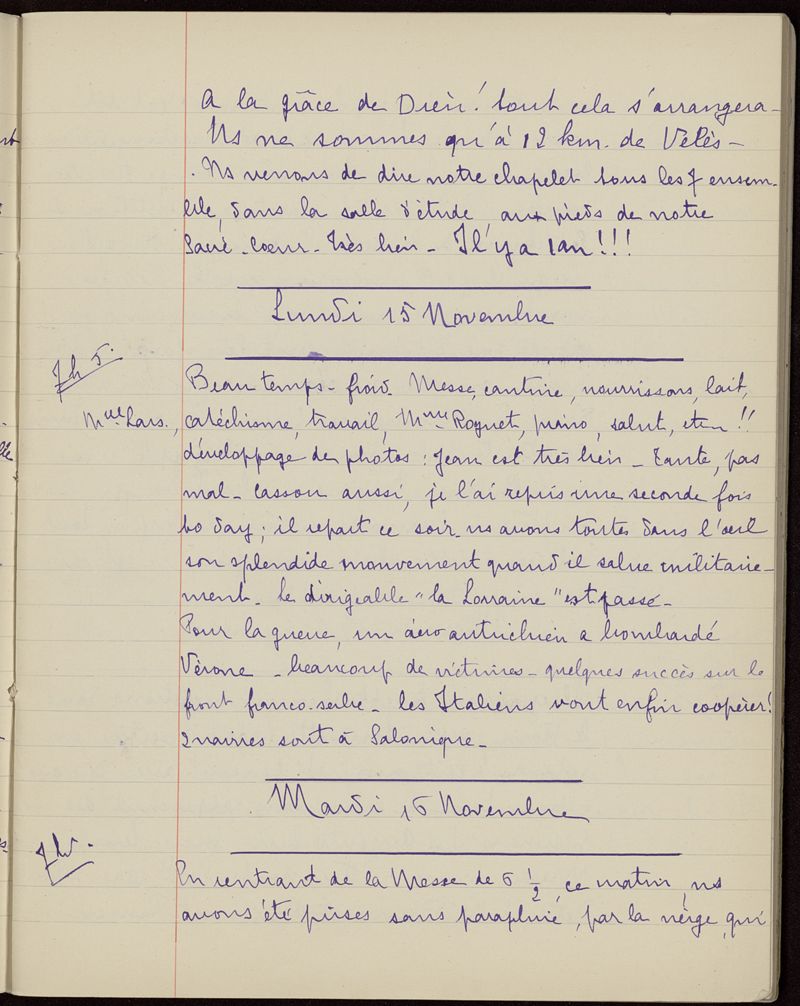 A la grâce de Dieu! tout cela s'arrangera -
Ns ne sommes qu'à 12 km. de Vélès -
. Ns venons de dire notre chapelet tous les 7 ensem-
ble, dans la salle d'étude, aux pieds de notre
Sacré-Cœur - Très bien - Il y a 1 an!!!
Lundi 15 Novembre
Beau temps - froid. Messe, cantine, nourrissons, lait,
Mlle Lars., catéchisme, travail, Mme Roguet, piano, salut, etc !!
développage de photos : Jean est très bien - Tante, pas
mal - Casson aussi, je l'ai repris une seconde fois
to day ; il repart ce soir. ns avons toutes dans l'œil
son splendide mouvement quand il salue militaire-
ment - le dirigeable "la Lorraine" est passé -
Pour la guerre, un aéro autrichien a bombardé
Vérone - beaucoup de victimes - quelques succès sur le
front franco-serbe - les Italiens vont enfin coopérer!
2 navires sont à Salonique -
Mardi 16 Novembre
En rentrant de la Messe de 6 ½, ce matin, ns
avons été prises sans parapluie, par la neige, qui